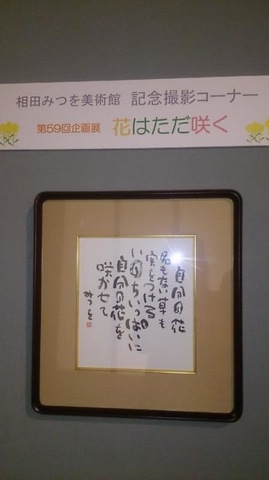 相田みつを美術館 記念撮影コーナー
第59回企画展 花はただ咲く
自分の花
名もない草も
実をつける
いのちいっぱいに
自分の花を
咲かせて
みつを